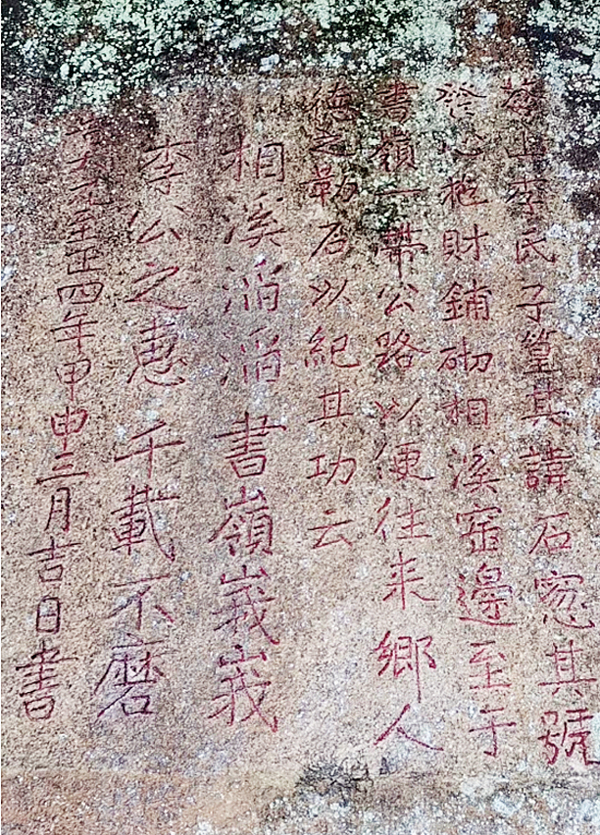 上李氏子篁其諱石窓其號
發心抱財鋪砌相溪窑邊至于
書嶺一帶公路以便往来鄉人
德之勒石以紀其功云
相溪滔滔書嶺峩峩
李公之惠千載不磨
大元至正四年甲申三月吉日書